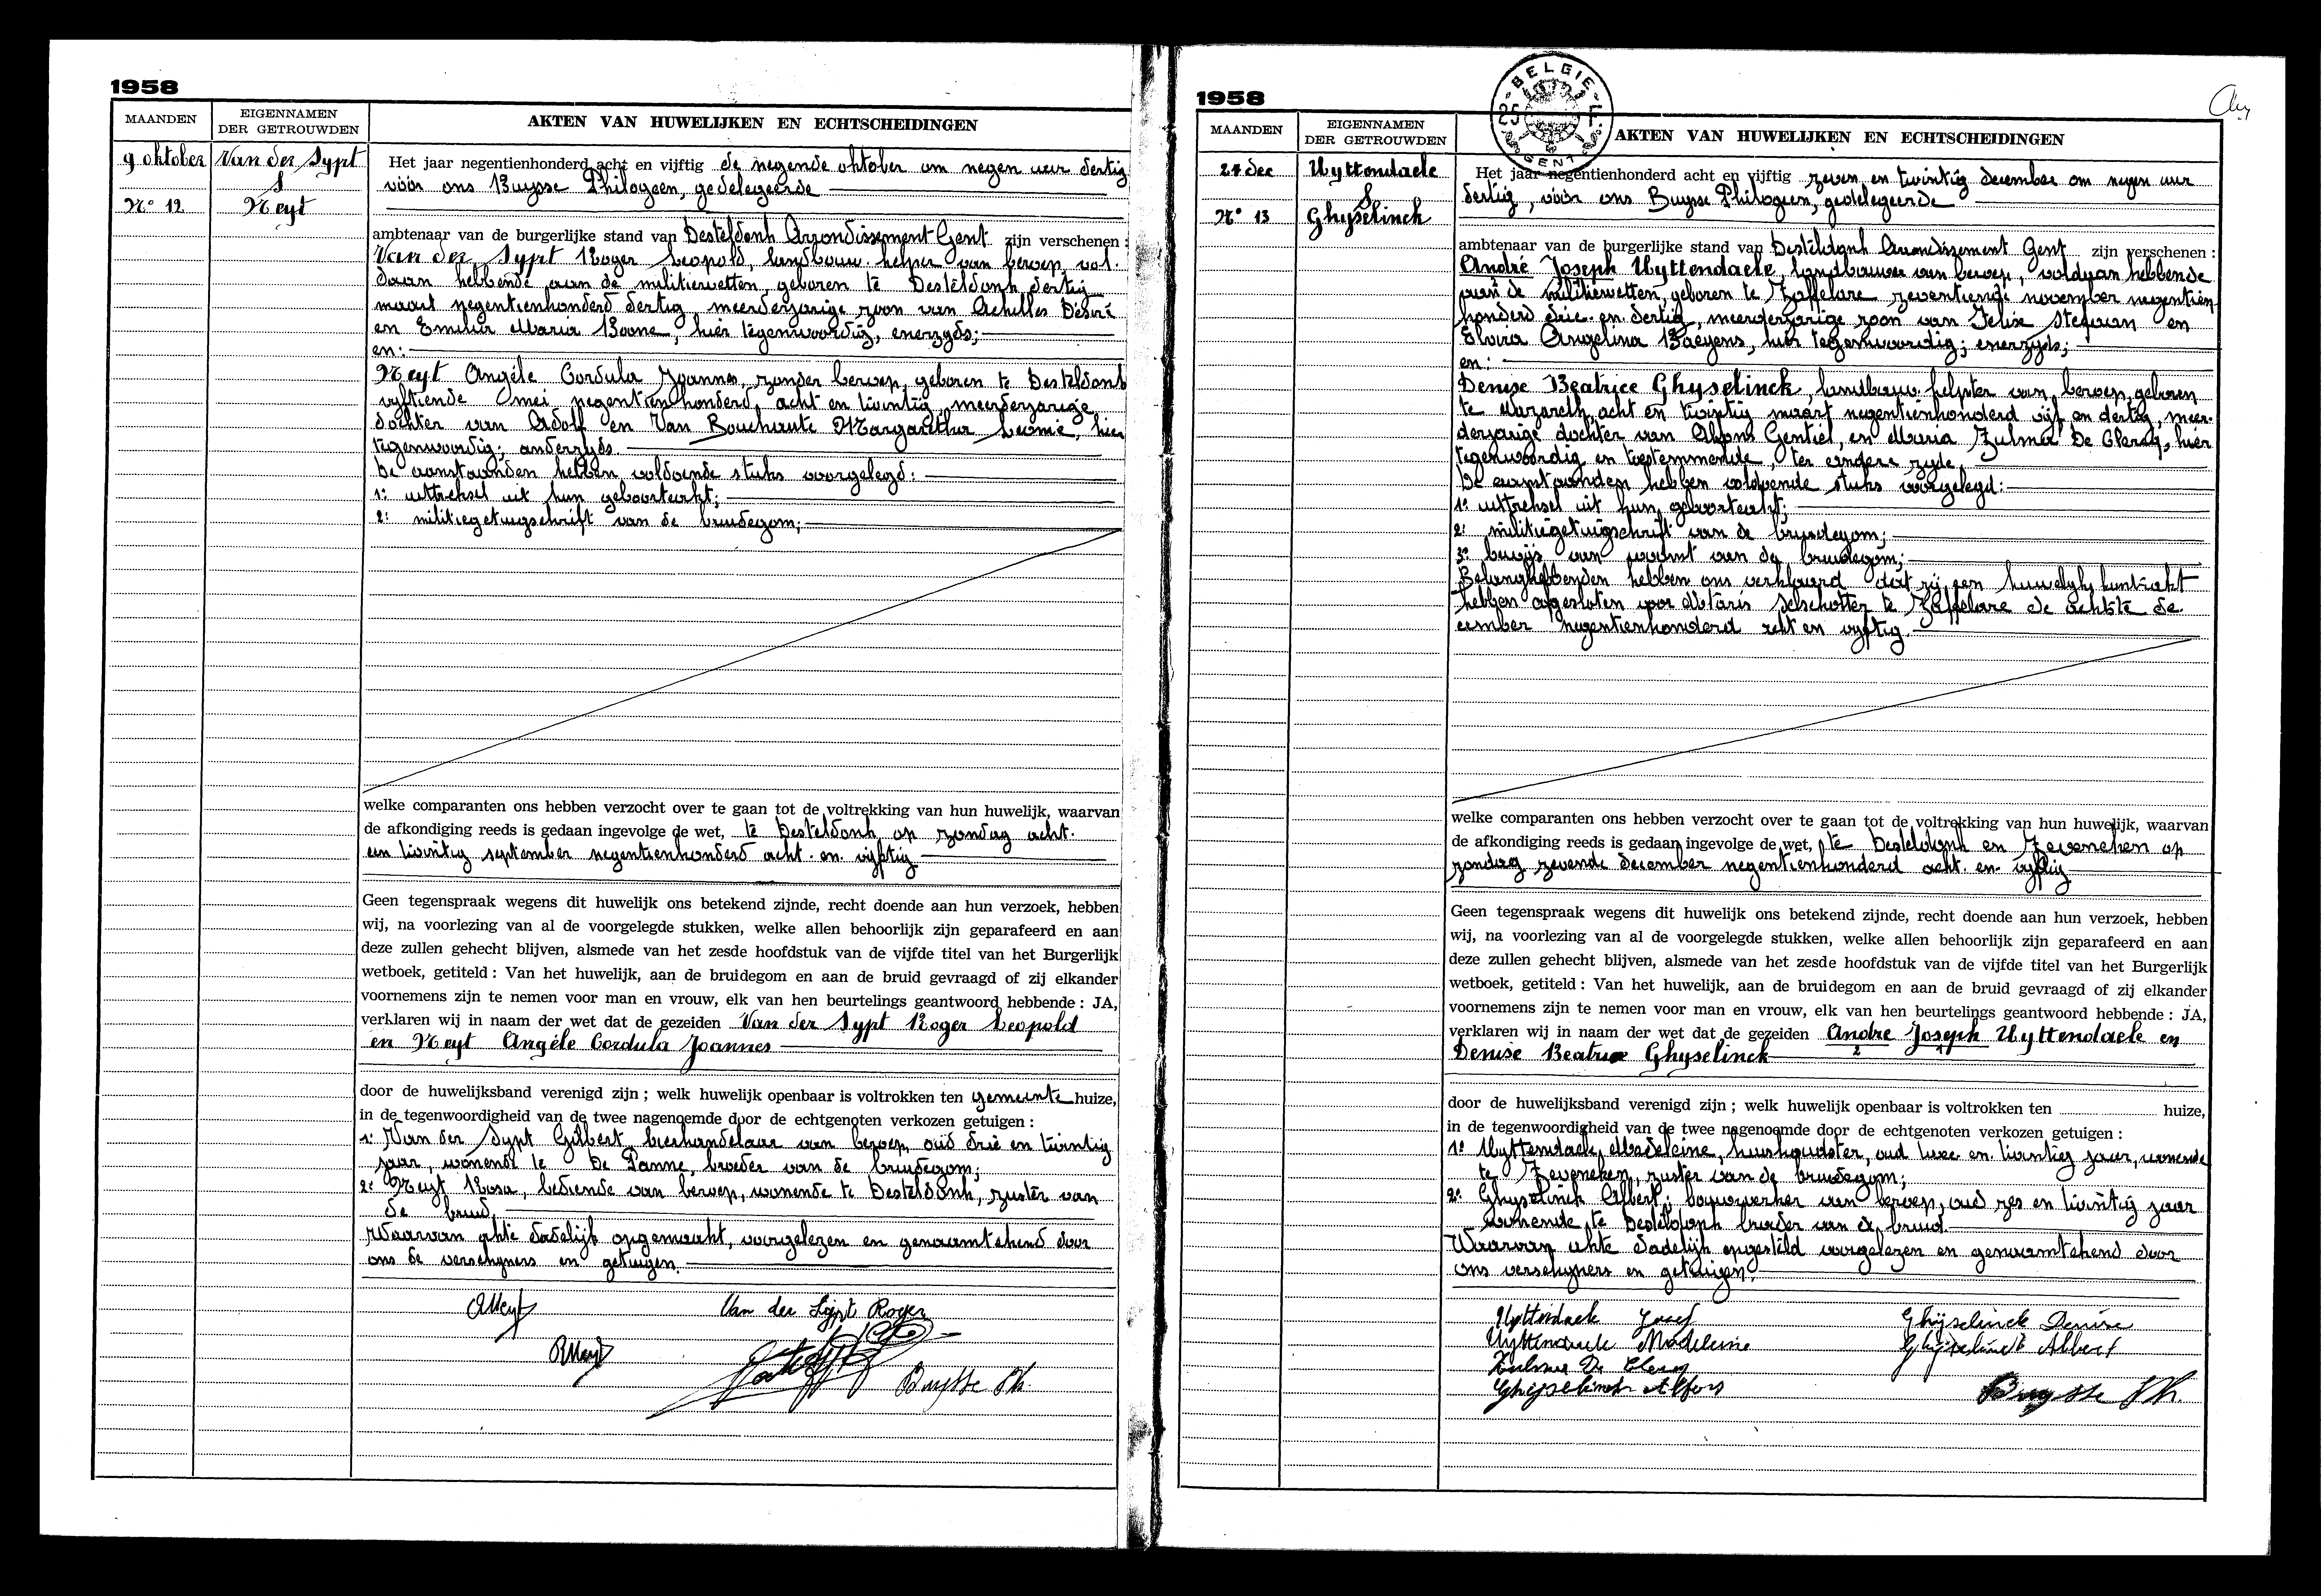 1958
MAANDEN
EIGENNAMEN
DER GETROUWDEN
AKTEN VAN HUWELIJKEN EN ECHTSCHEIDINGEN
9 oktober
Van der Sypt
&
Nº 12
Neyt
Het jaar negentienhonderd acht en vijftig de negende oktober om negen uur dertig
vóór ons Buysse Philogeen, gedelegeerde
ambtenaar van de burgerlijke stand van Desteldonk Arrondissement Gent zijn verschenen :
Van der Sypt Roger Leopold, landbouw. helper van beroep, vol-
daan hebbende aan de militiewetten, geboren te Desteldonk dertig
maart negentienhonderd dertig meerderjarige zoon van Achilles Désiré
en Emilia Maria Boone, hier tegenwoordig, enerzyds;
en:
Neyt Angèle Cordula Joannes, zonder beroep, geboren te Desteldonk
vyftiende mei negentienhonderd acht en twintig, meerderjarige
dochter van Adolf en Van Bouchaute Margaretha Leonie, hier
tegenwoordig; anderzyds.
De aanstaanden hebben voldoende stuks voorgelegd:
1: uittreksel uit hun geboorteakt;
2: militiegetuigschrift van de bruidegom;
welke comparanten ons hebben verzocht over te gaan tot de voltrekking van hun huwelijk, waarvan
de afkondiging reeds is gedaan ingevolge de wet, te Desteldonk op zondag acht-
en twintig september negentienhonderd acht- en vijftig
Geen tegenspraak wegens dit huwelijk ons betekend zijnde, recht doende aan hun verzoek, hebben
wij, na voorlezing van al de voorgelegde stukken, welke allen behoorlijk zijn geparafeerd en aan
deze zullen gehecht blijven, alsmede van het zesde hoofdstuk van de vijfde titel van het Burgerlijk
wetboek, getiteld : Van het huwelijk, aan de bruidegom en aan de bruid gevraagd of zij elkander
voornemens zijn te nemen voor man en vrouw, elk van hen beurtelings geantwoord hebbende : JA,
verklaren wij in naam der wet dat de gezeiden Van der Sypt Roger Leopold
en Neyt Angéle Cordula Joannes
door de huwelijksband verenigd zijn ; welk huwelijk openbaar is voltrokken ten gemeente huize,
in de tegenwoordigheid van de twee nagenoemde door de echtgenoten verkozen getuigen :
1: Van der Sypt Gilbert bierhandelaar van beroep, oud drie en twintig
jaar, wonende te De Panne, broeder van de bruidegom;
2: Neyt Rosa, bediende van beroep, wonende te Desteldonk, zuster van
de bruid.
Waarvan akte dadelijk opgemaakt, voorgelezen en genaamtekend door
ons de verschyners en getuigen.
ANeyt
Van der Sypt Roger
RNeyt
Buysse Ph.
1958
BELGIE
25 F.
GENT
MAANDEN
EIGENNAMEN
DER GETROUWDEN
AKTEN VAN HUWELIJKEN EN ECHTSCHEIDINGEN
27 dec
Uyttendaele
&
Nº 13
Ghyselinck
Het jaar negentienhonderd acht en vijftig zeven en twintig december om negen uur
dertig, vóór ons Buysse Philogeen, gedelegeerde
ambtenaar van de burgerlijke stand van Desteldonk Arrondissement Gent zijn verschenen :
André Joseph Uyttendaele, landbouwer van beroep, voldaan hebbende
aan de militiewetten, geboren te Zaffelare zeventiende november negentien-
honderd drie- en dertig, meerderjarige zoon van Felix Stefaan en
Elvira Angelina Baeyens, hier tegenwoordig; enerzyds;
en:
Denise Beatrice Ghyselinck, landbouw helpster van beroep, geboren
te Nazareth acht en twintig maart negentienhonderd vijf en dertig, meer-
derjarige dochter van Alfons Gentiel, en Maria Zulma De Clercq, hier
tegenwoordig en toestemmende, ter andere zyde,
De aanstaanden hebben voldoende stuks voorgelegd:
1: uittreksel uit hun geboorteakt;
2: militiegetuigschrift van de bruidegom;
3: bewijs van woonst van de bruidegom;
Belanghebbenden hebben ons verklaard dat zij een huwelyks kontrakt
hebben afgesloten voor Notaris Selschotter te Zaffelare de achtste de-
cember negentienhonderd acht en vyftig.
welke comparanten ons hebben verzocht over te gaan tot de voltrekking van hun huwelijk, waarvan
de afkondiging reeds is gedaan ingevolge de wet, te Desteldonk en Zeveneken op
zondag zevende december negentienhonderd acht- en- vyftig
Geen tegenspraak wegens dit huwelijk ons betekend zijnde, recht doende aan hun verzoek, hebben
wij, na voorlezing van al de voorgelegde stukken, welke allen behoorlijk zijn geparafeerd en aan
deze zullen gehecht blijven, alsmede van het zesde hoofdstuk van de vijfde titel van het Burgerlijk
wetboek, getiteld : Van het huwelijk, aan de bruidegom en aan de bruid gevraagd of zij elkander
voornemens zijn te nemen voor man en vrouw, elk van hen beurtelings geantwoord hebbende : JA,
verklaren wij in naam der wet dat de gezeiden Andre Joseph Uyttendaele en
2 1
Denise Beatrice Ghyselinck
door de huwelijksband verenigd zijn ; welk huwelijk openbaar is voltrokken ten huize,
in de tegenwoordigheid van de twee nagenoemde door de echtgenoten verkozen getuigen :
1: Uyttendaele Madeleine, huishoudster, oud twee en twintig jaar, wonende
te Zeveneken, zuster van de bruidegom;
2: Ghyselinck Albert; bouwwerker van beroep, oud zes en twintig jaar
wonende te Desteldonk broeder van de bruid.
Waarvan akte dadelijk opgesteld voorgelezen en genaamtekend door
ons verschyners en getuigen.
Uyttendaele Josef
Ghijselinck Denise
Uyttendaele Madeleine
Ghijselinck Albert
Zulma De Clercq
Ghijselinck Alfons
Buysse Ph.